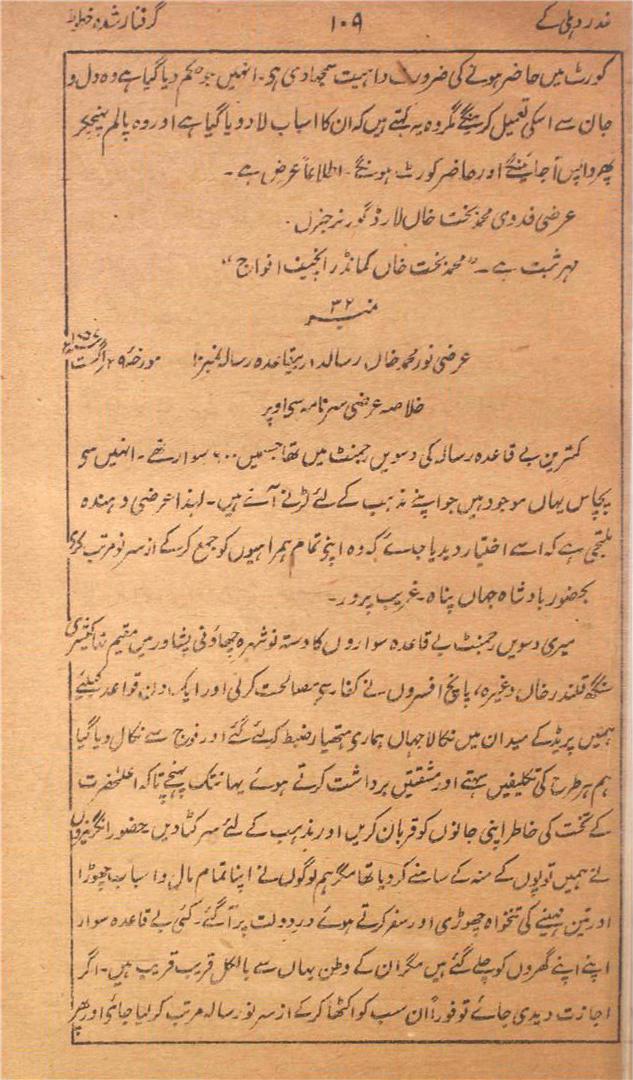 غدر دہلی کے ۱۰۹ گرفتار شدہ خطوط
کورٹ میں حاضر ہونے کی ضرورت و اہمیت سمجھا دی ہو۔ انہیں جو حکم دیا گیا ہے وہ دل و
جان سے اسکی تعمیل کرینگے مگر وہ یہ کہتے ہیں کہ ان کا اسباب لاد دیا گیا ہے اور وہ پالم پہنچکر
پھر واپس آجائینگے اور حاضر کورٹ ہونگے۔ اطلاعاً عرض ہے۔
عرضی فدوی محمد بخت خاں لارڈ گورنر جنرل۔
مہر ثبت ہے۔ "محمد بخت خاں کمانڈر انچیف افواج"
نمبر ۳۲
عرضی نور محمد خاں رسالدار بیقاعدہ رسالہ نمبر ۱۰ مورخہ ۲۹ اگست ۱۸۵۷ء
خلاصہ عرضی سرنامہ سی اوپر
کمترین بے قاعدہ رسالہ کی دسویں رجمنٹ میں تھا جسمیں ۶۰۰ سوار تھے۔ انہیں سی
پچاس یہاں موجود ہیں جو اپنے مذہب کے لئے لڑنے آئے ہیں۔ لہذا عرضی دہندہ
ملتجی ہے کہ اسے اختیار دیدیا جائے کہ وہ اپنی تمام ہمراہیوں کو جمع کرکے از سر نو مرتب کرلے
بحضور بادشاہ جہاں پناہ۔ غریب پرور۔
میری دسویں رجمنٹ بے قاعدہ سواروں کا دستہ نوشہرہ چھاؤنی پشاور میں مقیم تھا
سنگھ قلندر خاں وغیرہ، پانچ افسروں نے کفار سے مصالحت کرلی اور ایک دن قواعد کیلئے
ہمیں پریڈ کے میدان میں نکالا جہاں ہماری ہتھیار ضبط کرلئے گئے اور فوج سے نکال دیا گیا
ہم ہر طرح کی تکلیفیں سہتے اور مشقتیں برداشت کرتے ہوئے یہانتک پہنچے تاکہ اعلیٰحضرت
کے تخت کی خاطر اپنی جانوں کو قربان کریں اور مذہب کے لئے سر کٹا دیں۔ حضور انگریزوں
نے ہمیں توپوں کے منہ کے سامنے کر دیا تھا مگر ہم لوگوں نے اپنا تمام مال و اسباب چھوڑا
اور تین مہینے کی تنخواہ چھوڑی اور سفر کرتے ہوئے در دولت پر آگئے۔ کئی بے قاعدہ سوار
اپنے اپنے گھروں کو چلے گئے ہیں مگر ان کے وطن یہاں سے بالکل قریب قریب ہیں۔ اگر
اجازت دیدی جائے تو فوراً ان سب کو اکٹھا کرکے از سر نو رسالہ مرتب کرلیا جائی اور پھر